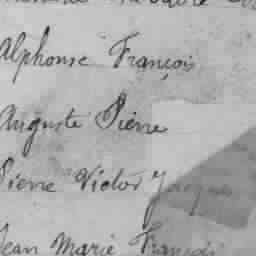 Alphonse François
Auguste Pierre
Pierre Victor Jacques
Jean Marie François